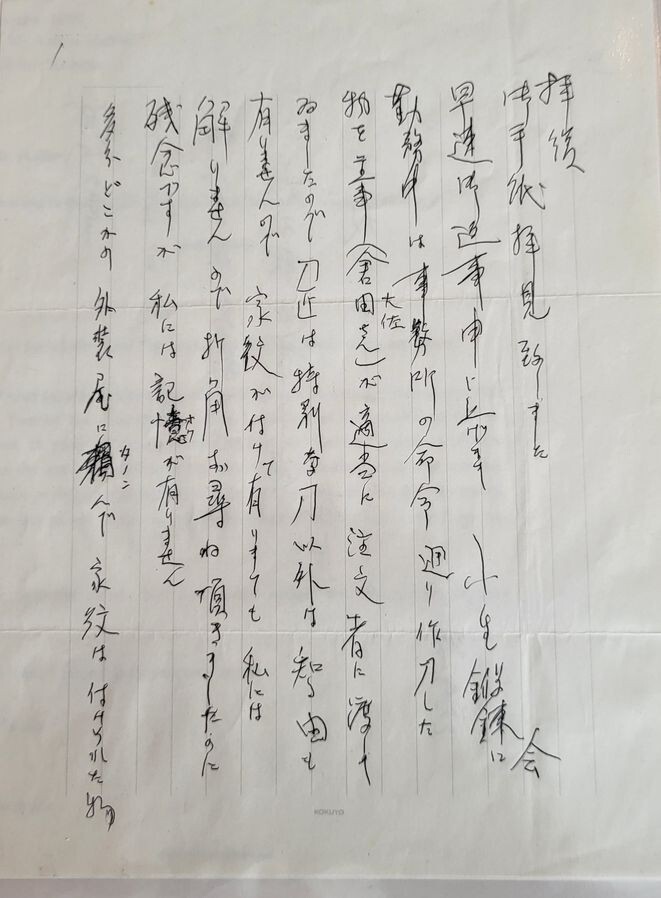 1.
拝復
御手紙拝見致しました
早速御返事申し上げます 小生鍛錬会に
勤務中は事務所の命令通り作刀した
物を主事(倉田大佐)が適当に注文者に渡して
ゐましたので刀匠は特別な刀以外は知る由も
有りませんので 家紋が付けて有りましても 私には
解りませんので折角お尋ね頂きましたのに
残念ですが 私には記憶オクが有りません
多分どこかの外装屋に頼タノンんで 家紋は付けられた物
KOKUYO